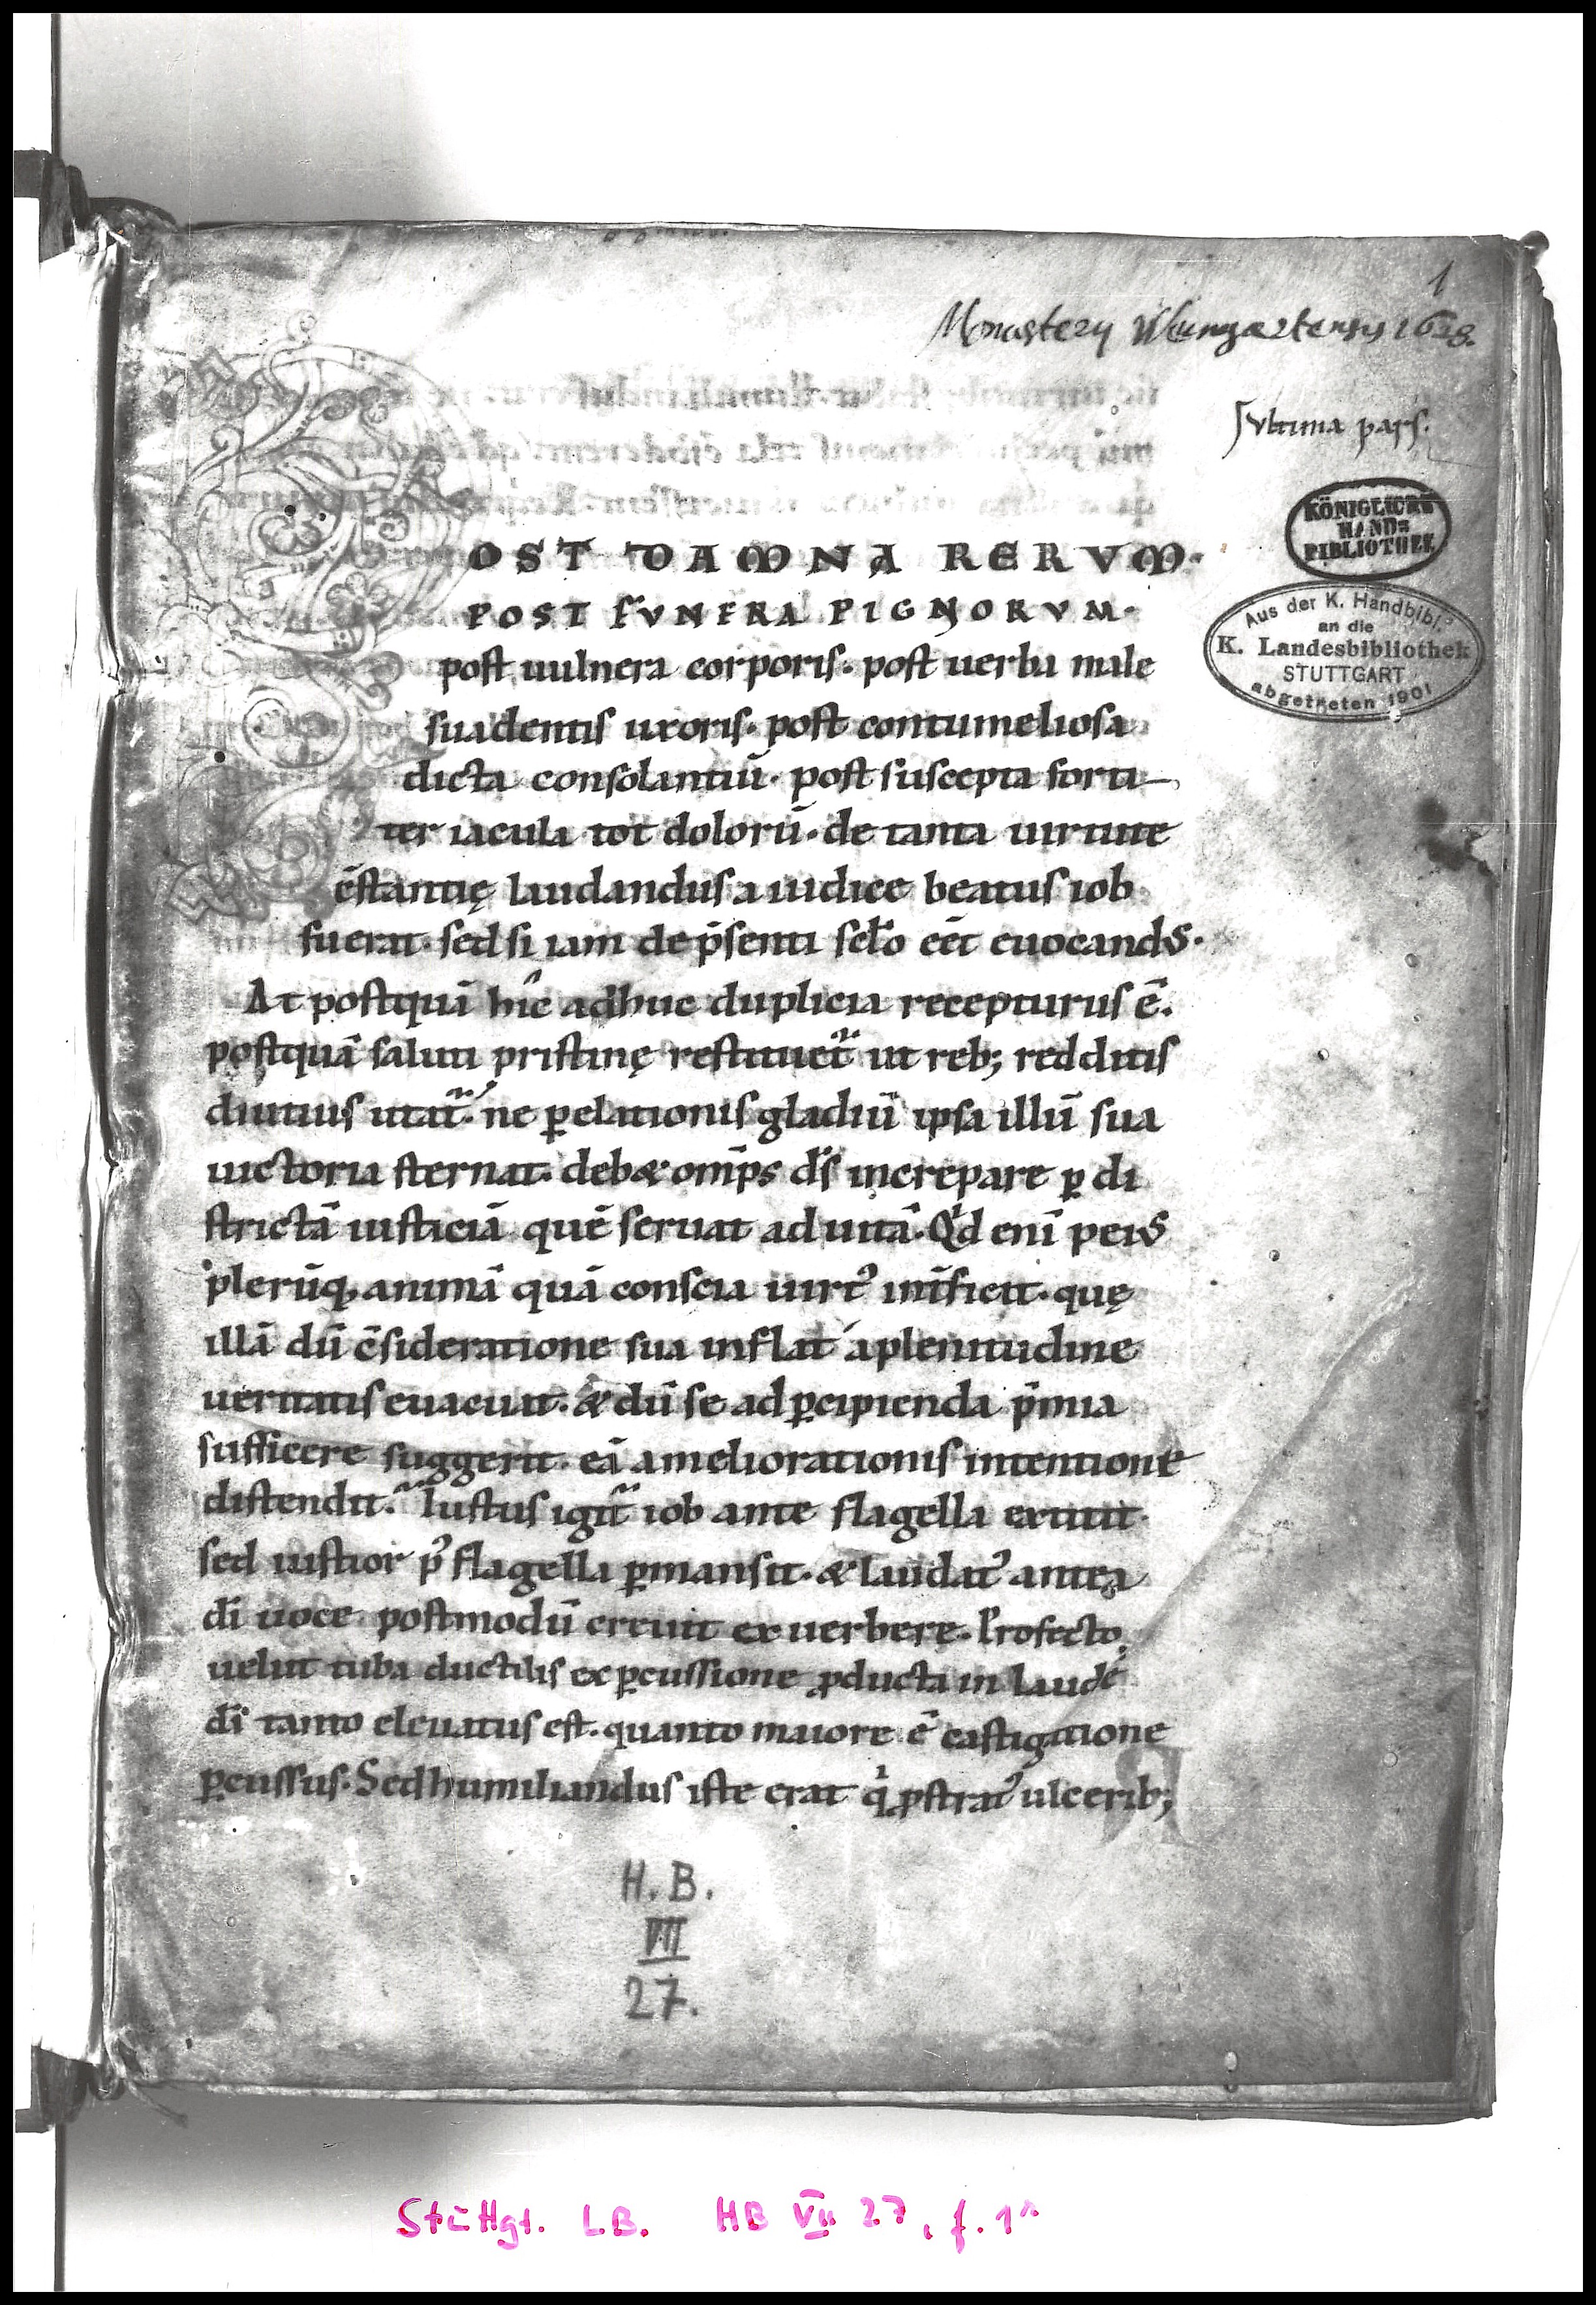 1
Monasterij Weingartensis 1628.
ultima pars.
KÖNIGLICHE
HAND=
BIBLIOTHEK
Aus der K. Handbibl.
an die
K. Landesbibliothek
STUTTGART
abgetreten 1901
OST DAMNA RERVM·
POST FVNERA PIGNORVM·
post uulnera corporis· post uerba male
suadentis uxoris· post contumeliosa
dicta consolantiū· post suscepta forti
ter iacula tot dolorū· de tanta uirtute
c̄stantię laudandus a iudice beatus iob
fuerat· sed si iam de p̄senti sclo eēt euocand9·
At postquā hic adhuc duplicia recepturus ē·
postquā saluti pristinę restituet᷑ ut reb; redditis
diutius utat᷑· ne ꝑ elationis gladiū ipsa illū sua
uictoria sternat· debet omīps ds̄ increpare ꝑ di
strictā iusticiā quē seruat ad uitā· Qd enī pei9
plerūq; animā quā conscia uirt9 int̄ficit· quę
illā dū c̄sideratione sua inflat a plenitudine
ueritatis euacuat· & dū se ad ꝑcipienda p̄mia
sufficere suggerit· eā a meliorationis intentione
distendit· Iustus igit᷑ iob ante flagella extitit·
sed iustior p9 flagella ꝑmansit· & laudat9 antea
dī uoce postmodū creuit ex uerbere· Profecto
uelut tuba ductilis ex ꝑcussione ꝓducta in laudē
dī tanto eleuatus est· quanto maiore ē castigatione
ꝑcussus· Sed humiliandus iste erat qͥ ꝓstrat9 ulcerib;
H. B.
VII
27.
Stuttgt. LB. HB VII 27, f. 1r